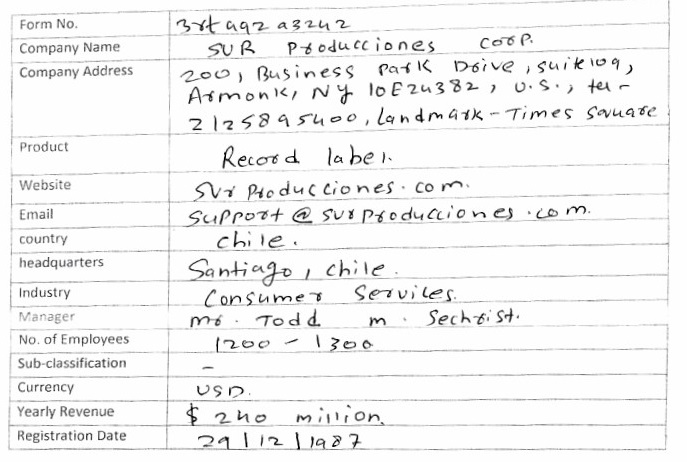 Form No. 3rtaq2a3242
Company Name SUR Producciones Corp.
Company Address 200, Business Park Drive, suite109,
Armonk, NY 10E24382, U.S., tel-
2125895400, Landmark-Times Square
Product Record label.
Website Svrproducciones.com.
Email Support@surproducciones.com.
country Chile.
headquarters Santiago, chile.
Industry Consumer Services.
Manager mr. Todd m. Sechrist.
No. of Employees 1200 - 1300
Sub-classification -
Currency USD.
Yearly Revenue $ 240 million.
Registration Date 29|12|1987